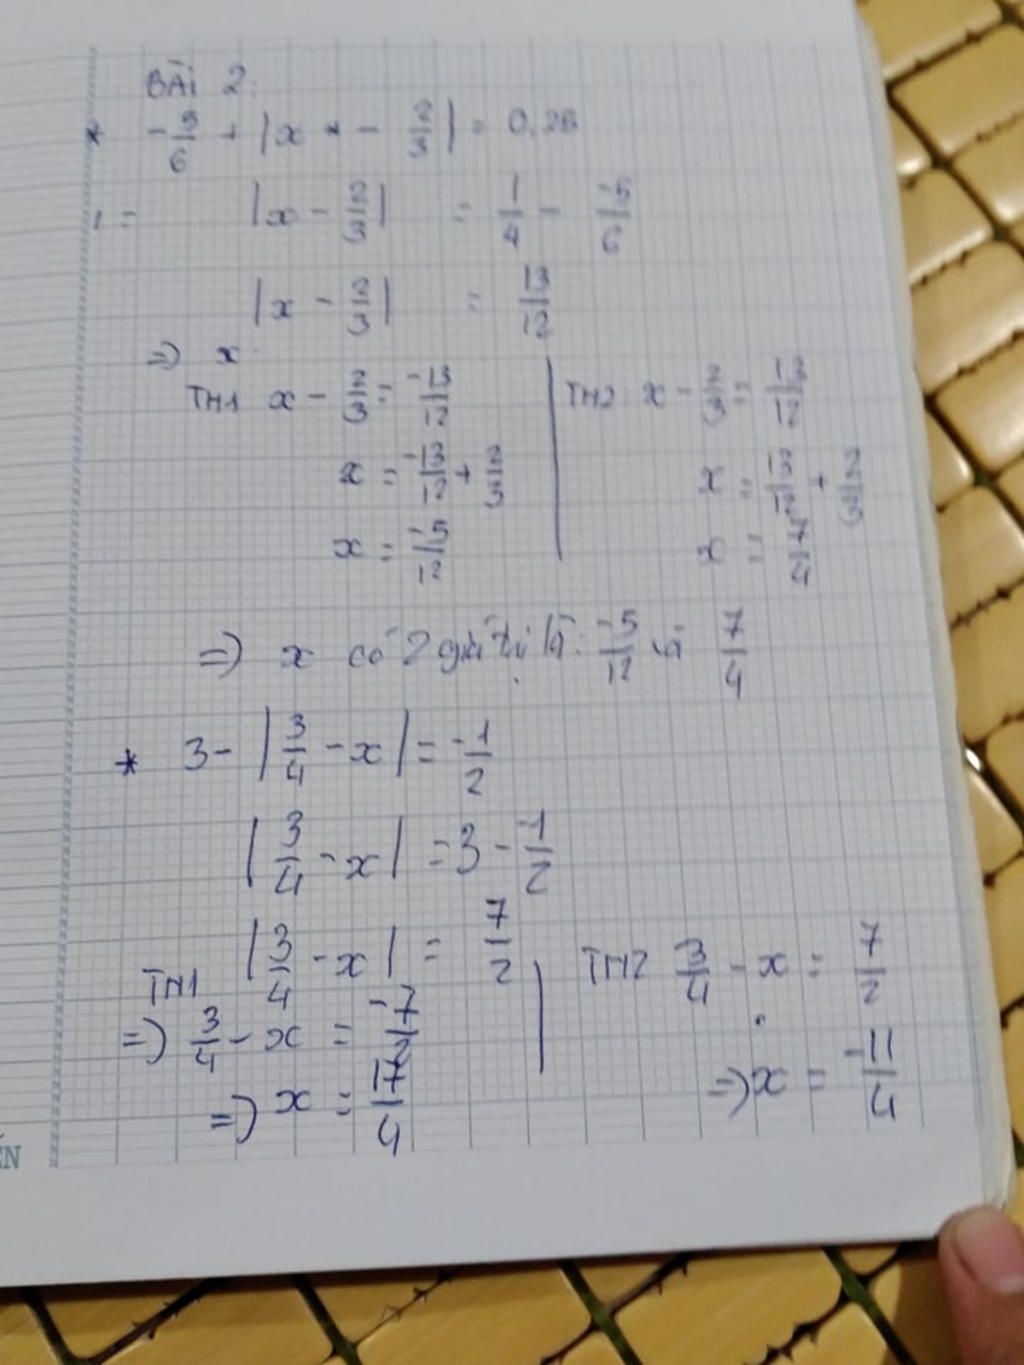 BÀI 2:
* -5/6 + |x - 2/3| = 0,25
|x - 2/3| = 1/4 - -5/6
|x - 2/3| = 13/12
=> x
TH1 x - 2/3 = -13/12
x = -13/12 + 2/3
x = -5/12
TH2 x - 2/3 = 13/12
x = 13/12 + 2/3
x = 7/4
=> x có 2 giá trị là: -5/12 và 7/4
* 3 - |3/4 - x| = -1/2
|3/4 - x| = 3 - -1/2
|3/4 - x| = 7/2
TH1
=> 3/4 - x = -7/2
=> x = 17/4
TH2 3/4 - x = 7/2
=> x = -11/4
ẾN